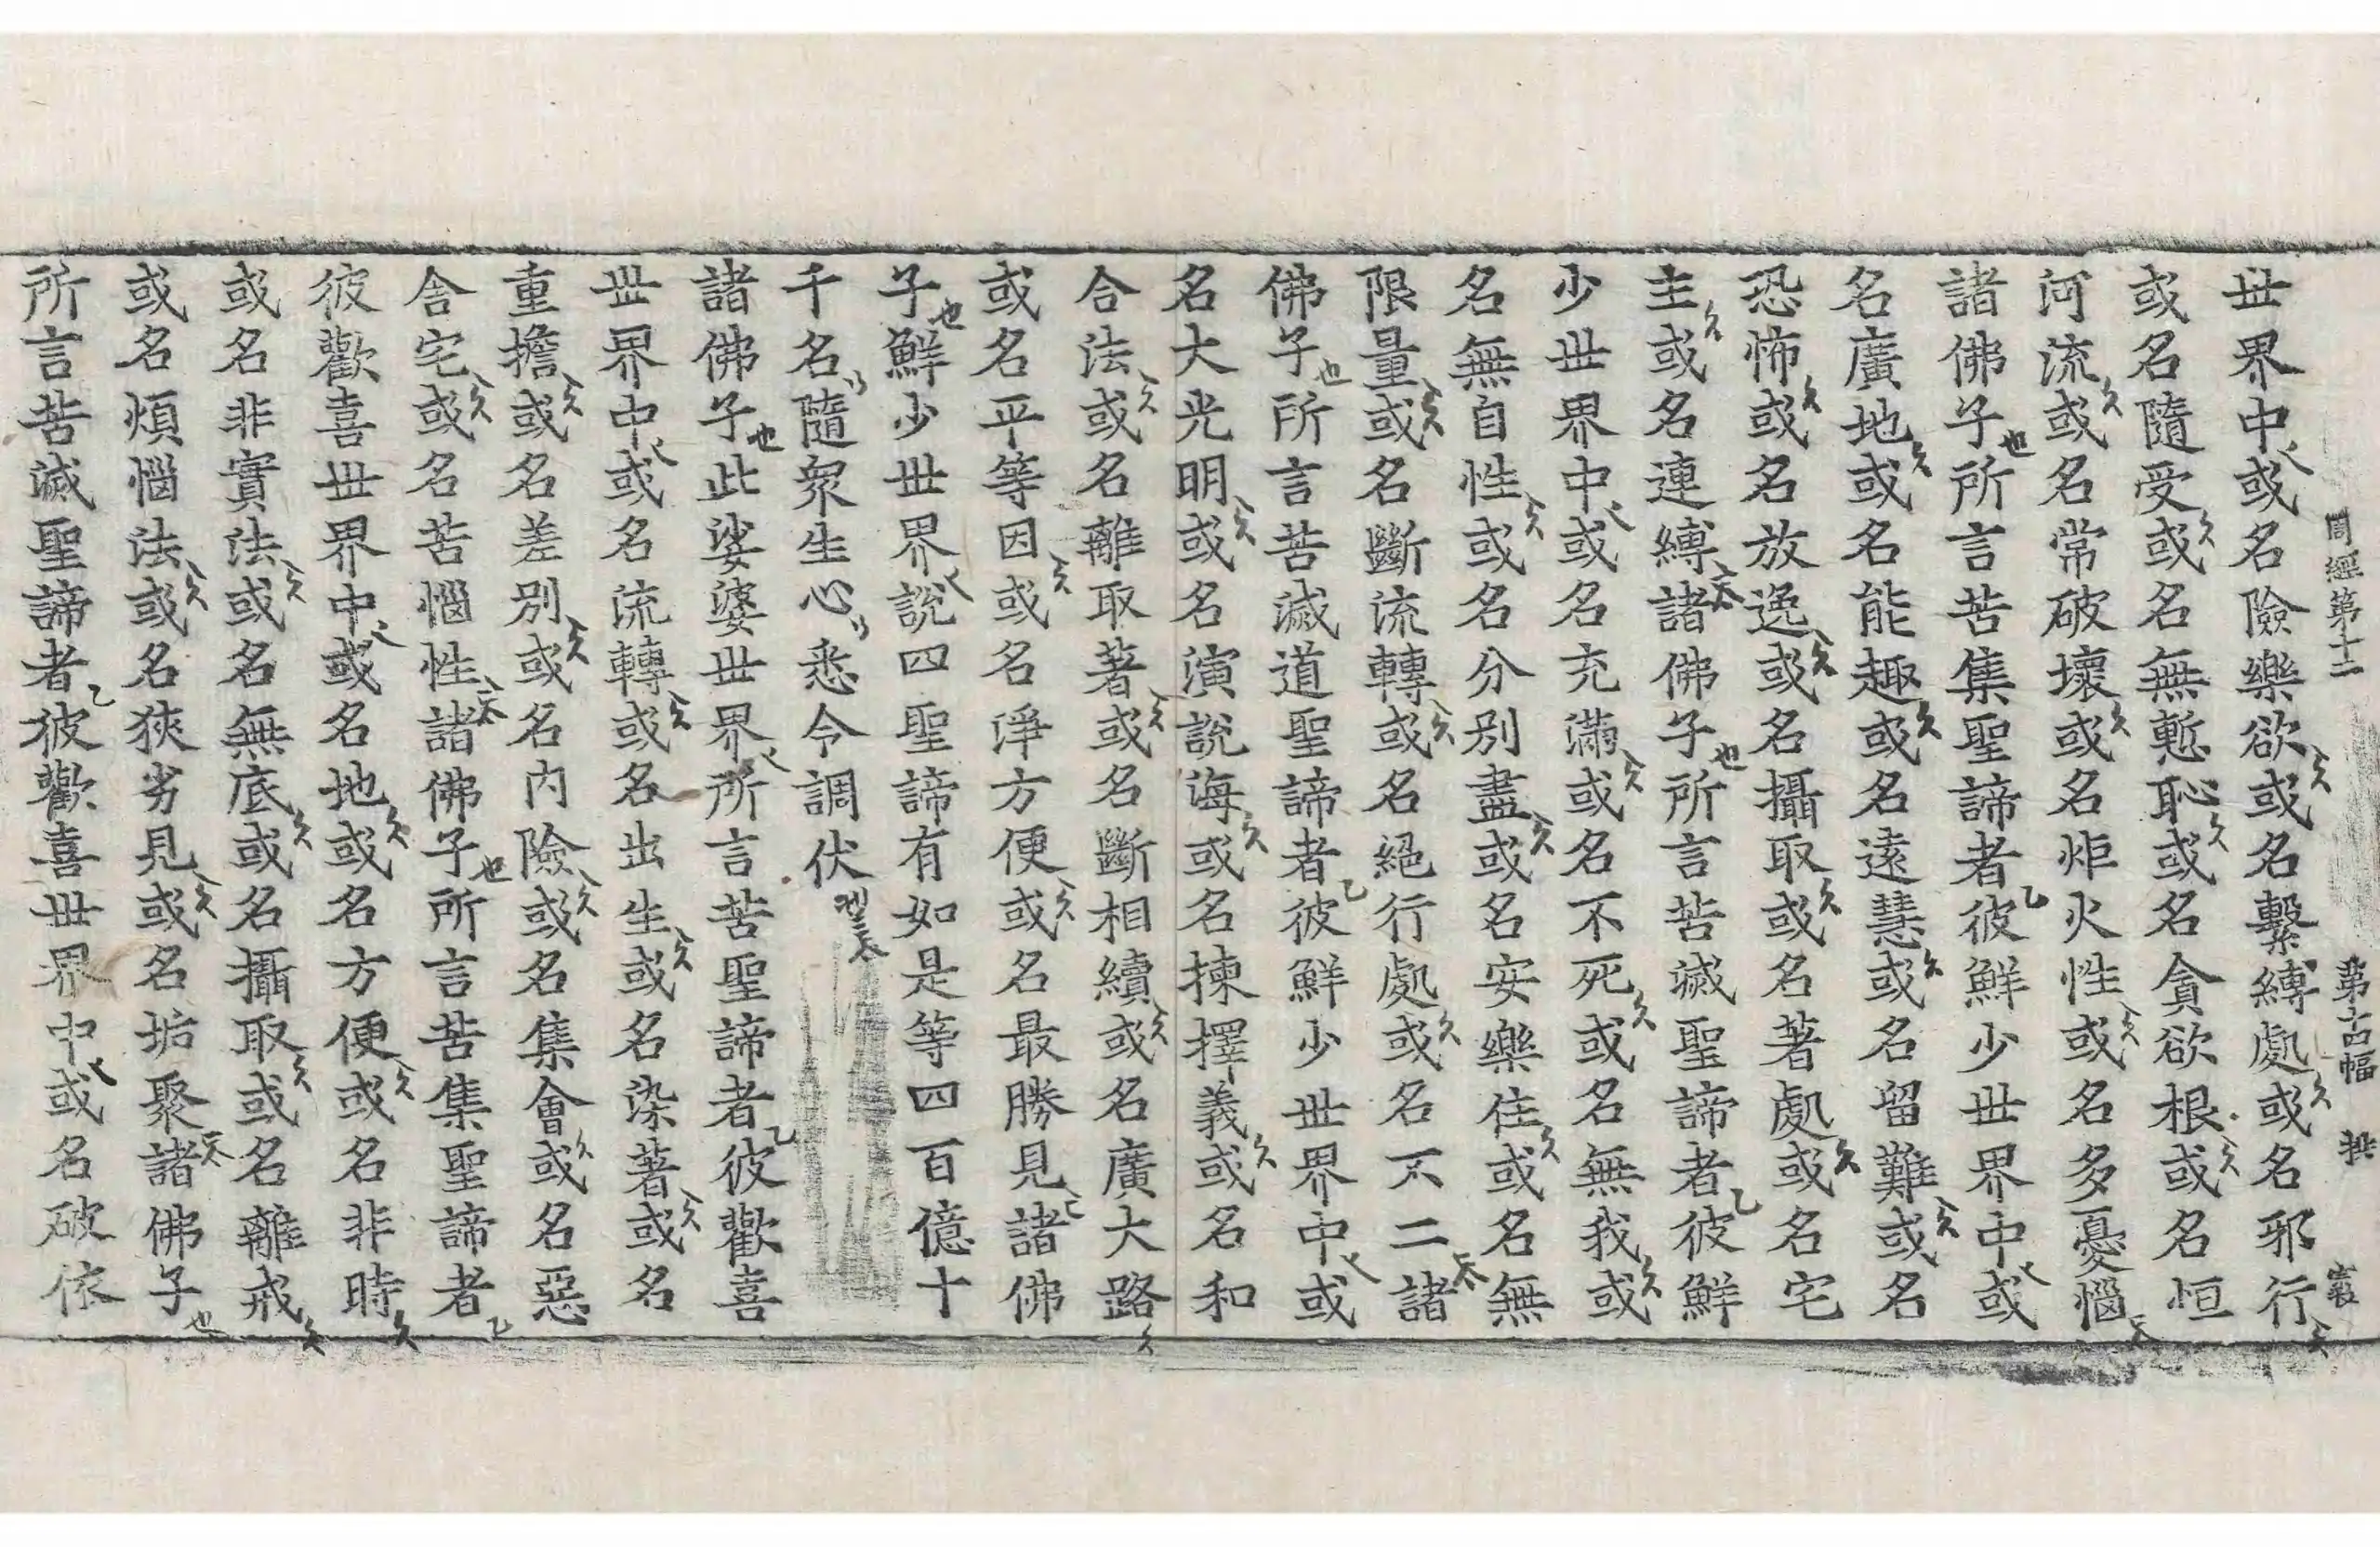 周經第十二 第古幅 拱 裳
世界中或名險樂欲或名繫縛處或名邪行
或名隨受或名無慙恥或名貪欲根或名恒
河流或名常破壞或名炬火性或名多憂惱
諸佛子所言苦集聖諦者彼鮮少世界中或
名廣地或名能趣或名遠慧或名留難或名
恐怖或名放逸或名攝取或名著處或名宅
主或名連縛諸佛子所言苦滅聖諦者彼鮮
少世界中或名充滿或名不死或名無我或
名無自性或名分別盡或名安樂住或名無
限量或名斷流轉或名絕行處或名不二諸
佛子所言苦滅道聖諦者彼鮮少世界中或
名大光明或名演說海或名揀擇義或名和
合法或名離取著或名斷相續或名廣大路
或名平等因或名淨方便或名最勝見諸佛
子鮮少世界說四聖諦有如是等四百億十
千名隨眾生心悉令調伏
諸佛子此娑婆世界所言苦聖諦者彼歡喜
世界中或名流轉或名出生或名染著或名
重擔或名差別或名內險或名集會或名惡
舍宅或名苦惱性諸佛子所言苦集聖諦者
彼歡喜世界中或名地或名方便或名非時
或名非實法或名無底或名攝取或名離戒
或名煩惱法或名狹劣見或名垢聚諸佛子
所言苦滅聖諦者彼歡喜世界中或名破依